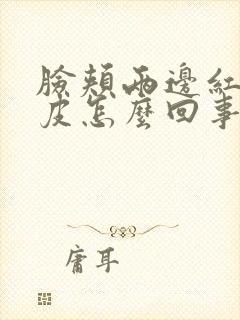 臉頰兩邊紅
皮怎麼回事
庸耳